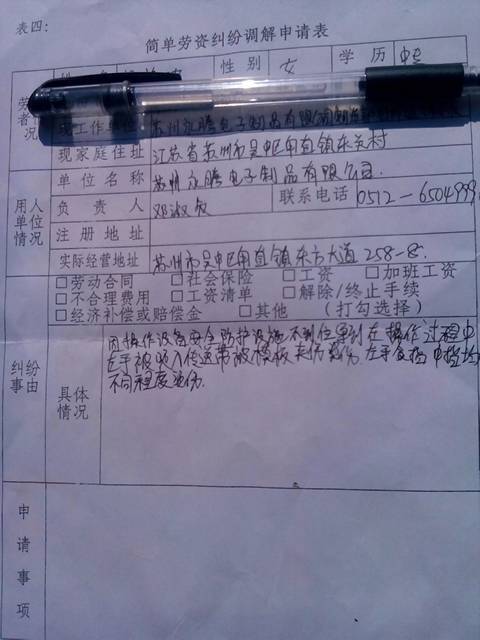 表四:
简单劳资纠纷调解申请表
性别 女 学历 中专
现家庭住址 江苏省苏州市吴中区甪直镇东关村
用人单位情况
单位名称 苏州永腾电子制品有限公司
负责人 邓淑 联系电话 0512-6504999
注册地址
实际经营地址 苏州市吴中区甪直镇东方大道258-8
纠纷事由
□劳动合同 □社会保险 □工资 □加班工资
□不合理费用 □工资清单 □解除/终止手续
□经济补偿或赔偿金 □其他 (打勾选择)
具体情况
因操作设备安全防护设施不到位导致在操作过程中
左手被吸入传送带被模板夹伤 左手食指中指均
不同程度
申请事项